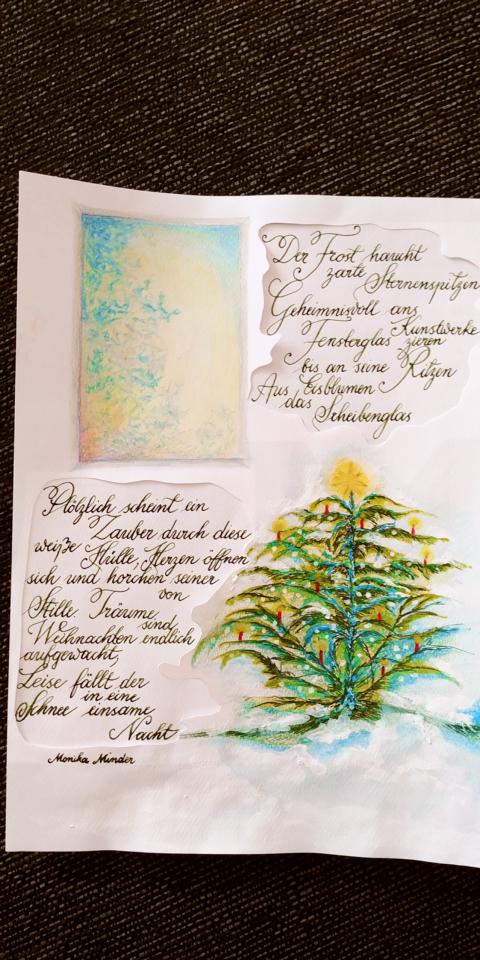 Der Frost haucht
zarte Sternenspitzen
Geheimnisvoll ans
Fensterglas Kunstwerke
zieren
bis an seine Ritzen
Aus Eisblumen
das Scheibenglas
Plötzlich scheint ein
Zauber durch diese
weiße Hülle, Herzen öffnen
sich und horchen seiner
Stille Träume von
Weihnachten sind endlich
aufgewacht,
Leise fällt der
Schnee in eine einsame
Nacht
Monika Minder